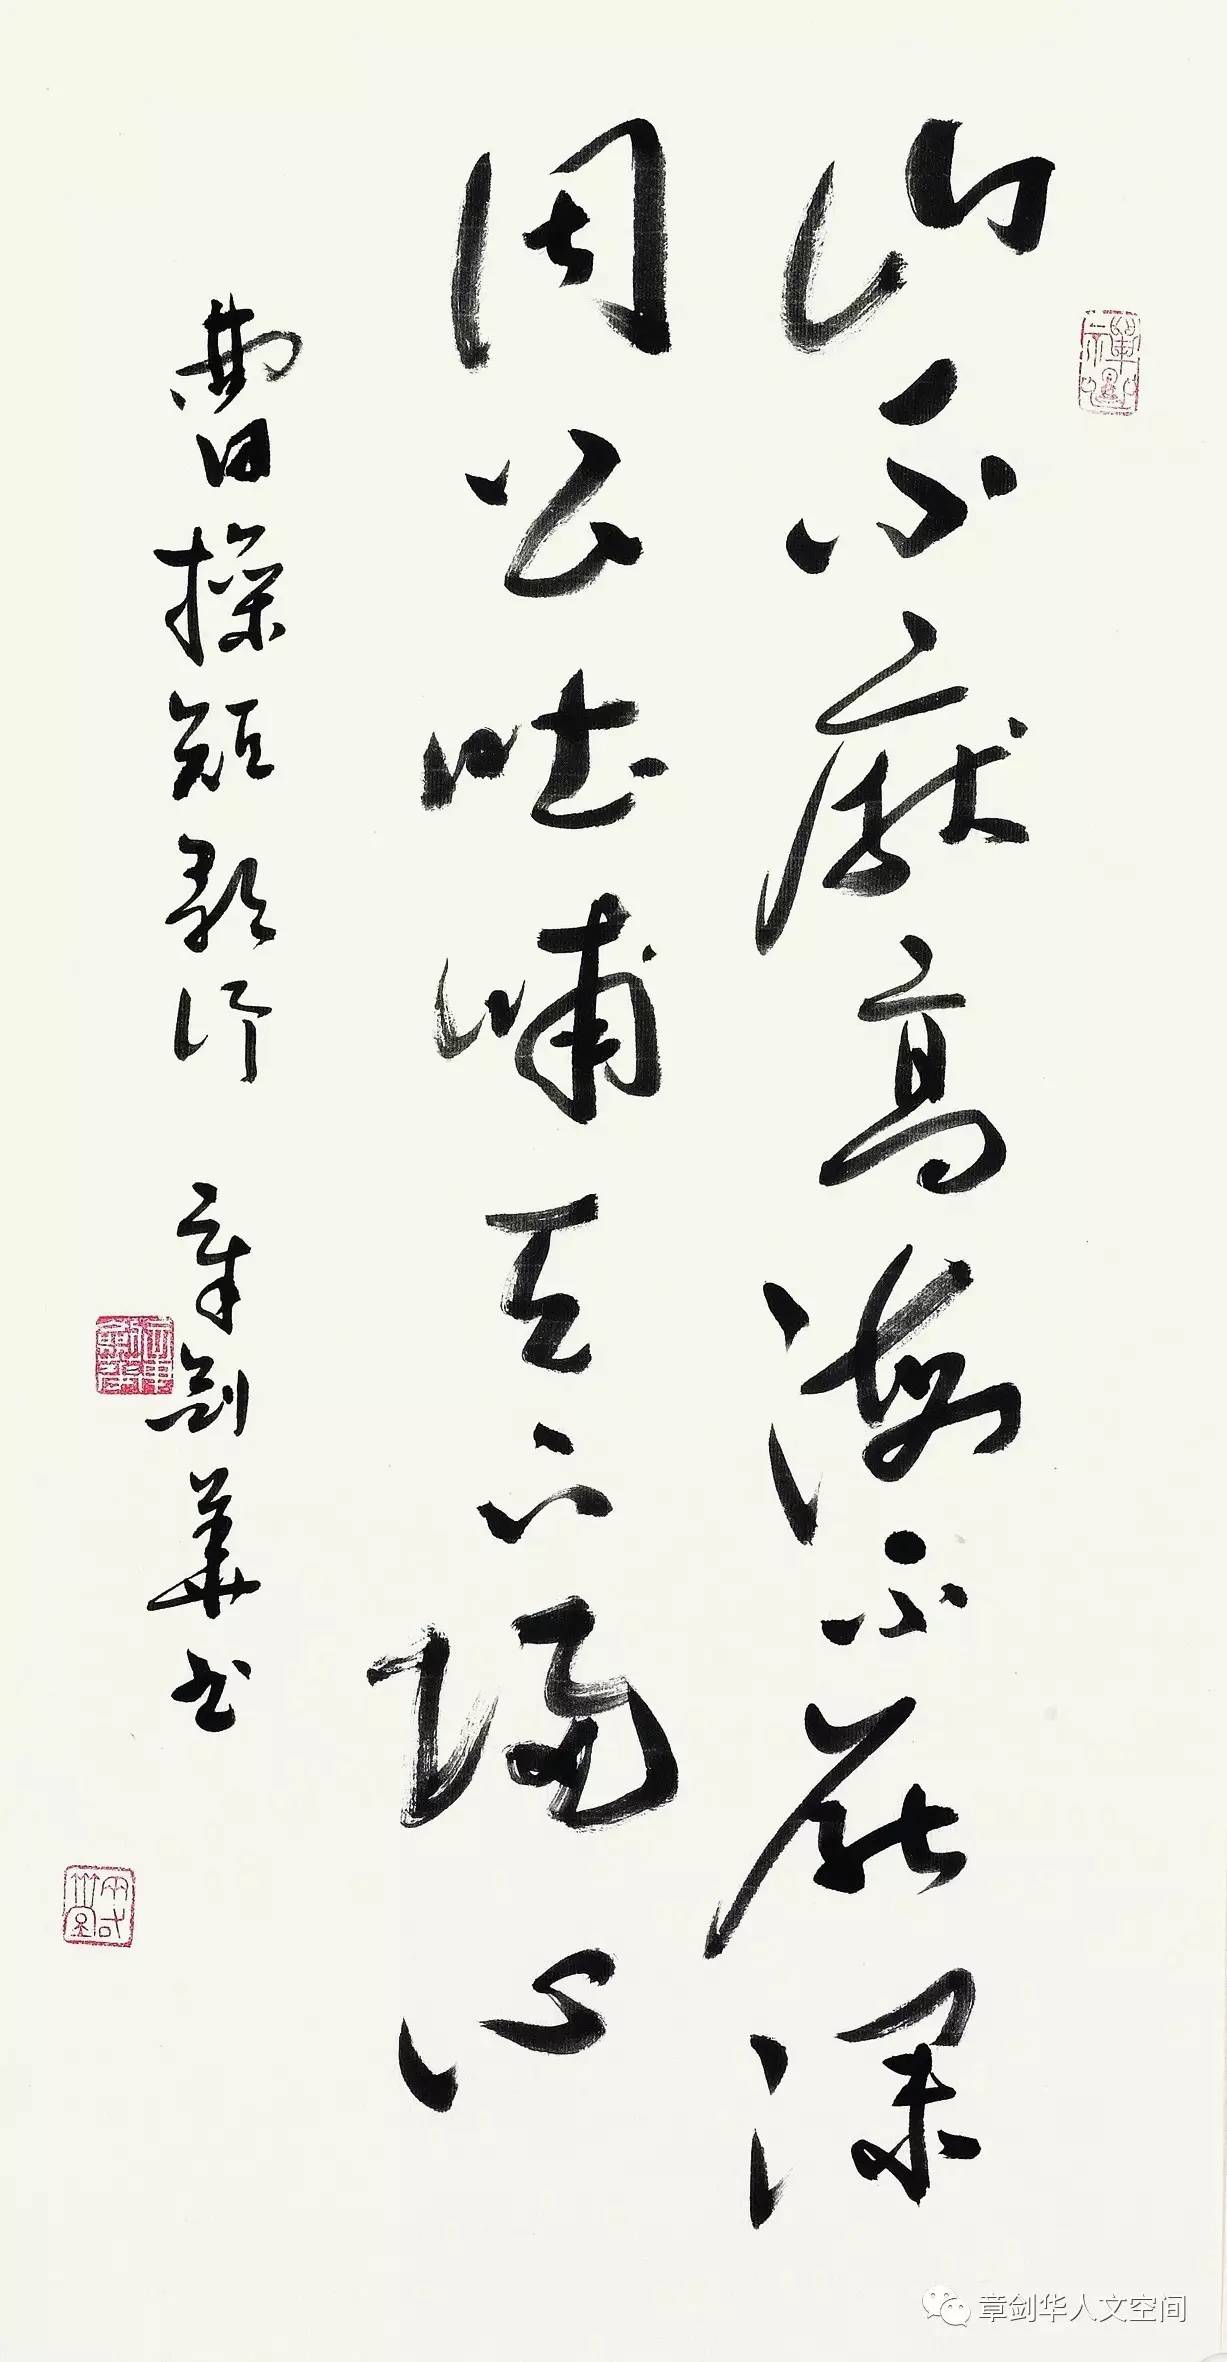 山不厭高海不厭深
周公吐哺天下歸心
曹操短歌行 章劍華书
章剑华人文空间